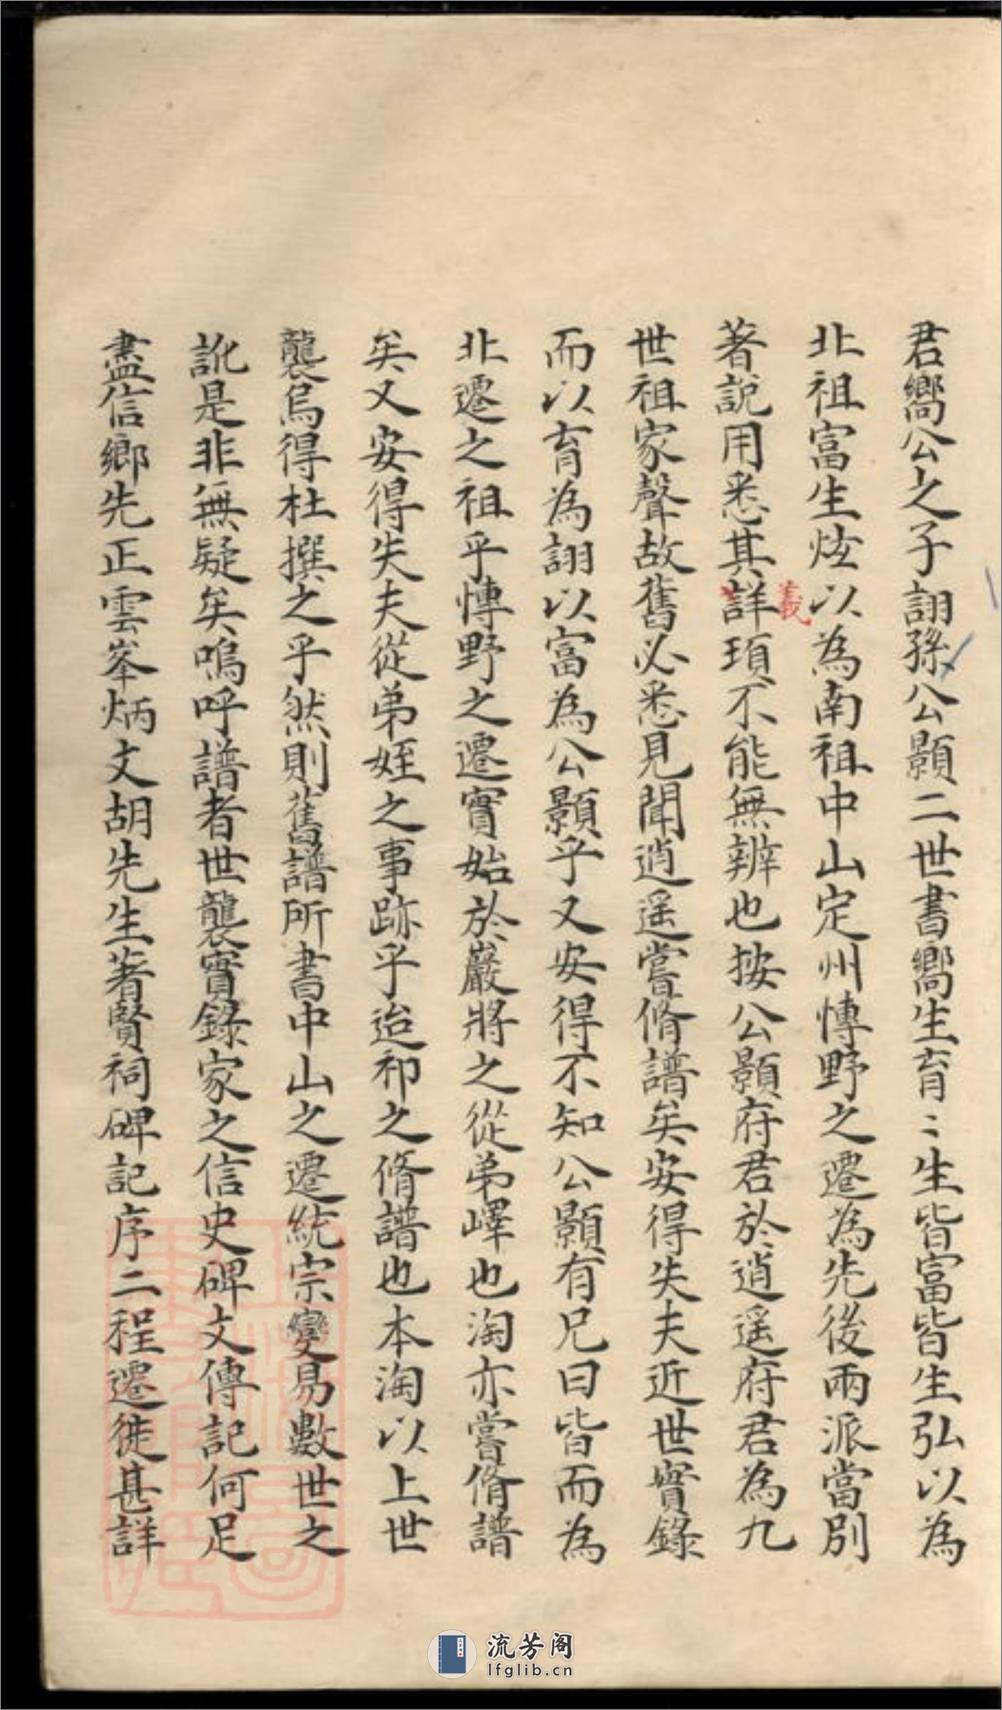 君嚮公之子詡孫公顥二世書嚮生育〻生皆富皆生弘以為
北祖富生炫以為南祖中山定州慱野之遷為先後兩派當別
著說用悉其詳頊不能無辨也按公顥府君於逍遥府君為九
義
世祖家聲故舊必悉見聞逍遥嘗脩譜矣安得失夫近世實錄
而以育為詡以富為公顥乎又安得不知公顥有兄曰皆而為
北遷之祖乎慱野之遷實始於嚴將之從弟嶧也淘亦嘗脩譜
矣又安得失夫從弟姪之事跡乎迨祁之脩譜也本淘以上世
襲烏得杜撰之乎然則舊譜所書中山之遷統宗變易數世之
訛是非無疑矣嗚呼譜者世襲實錄家之信史碑文傳記何足
盡信鄉先正雲峯炳文胡先生著賢祠碑記序二程遷徙甚詳
流芳阁
lfglib.cn